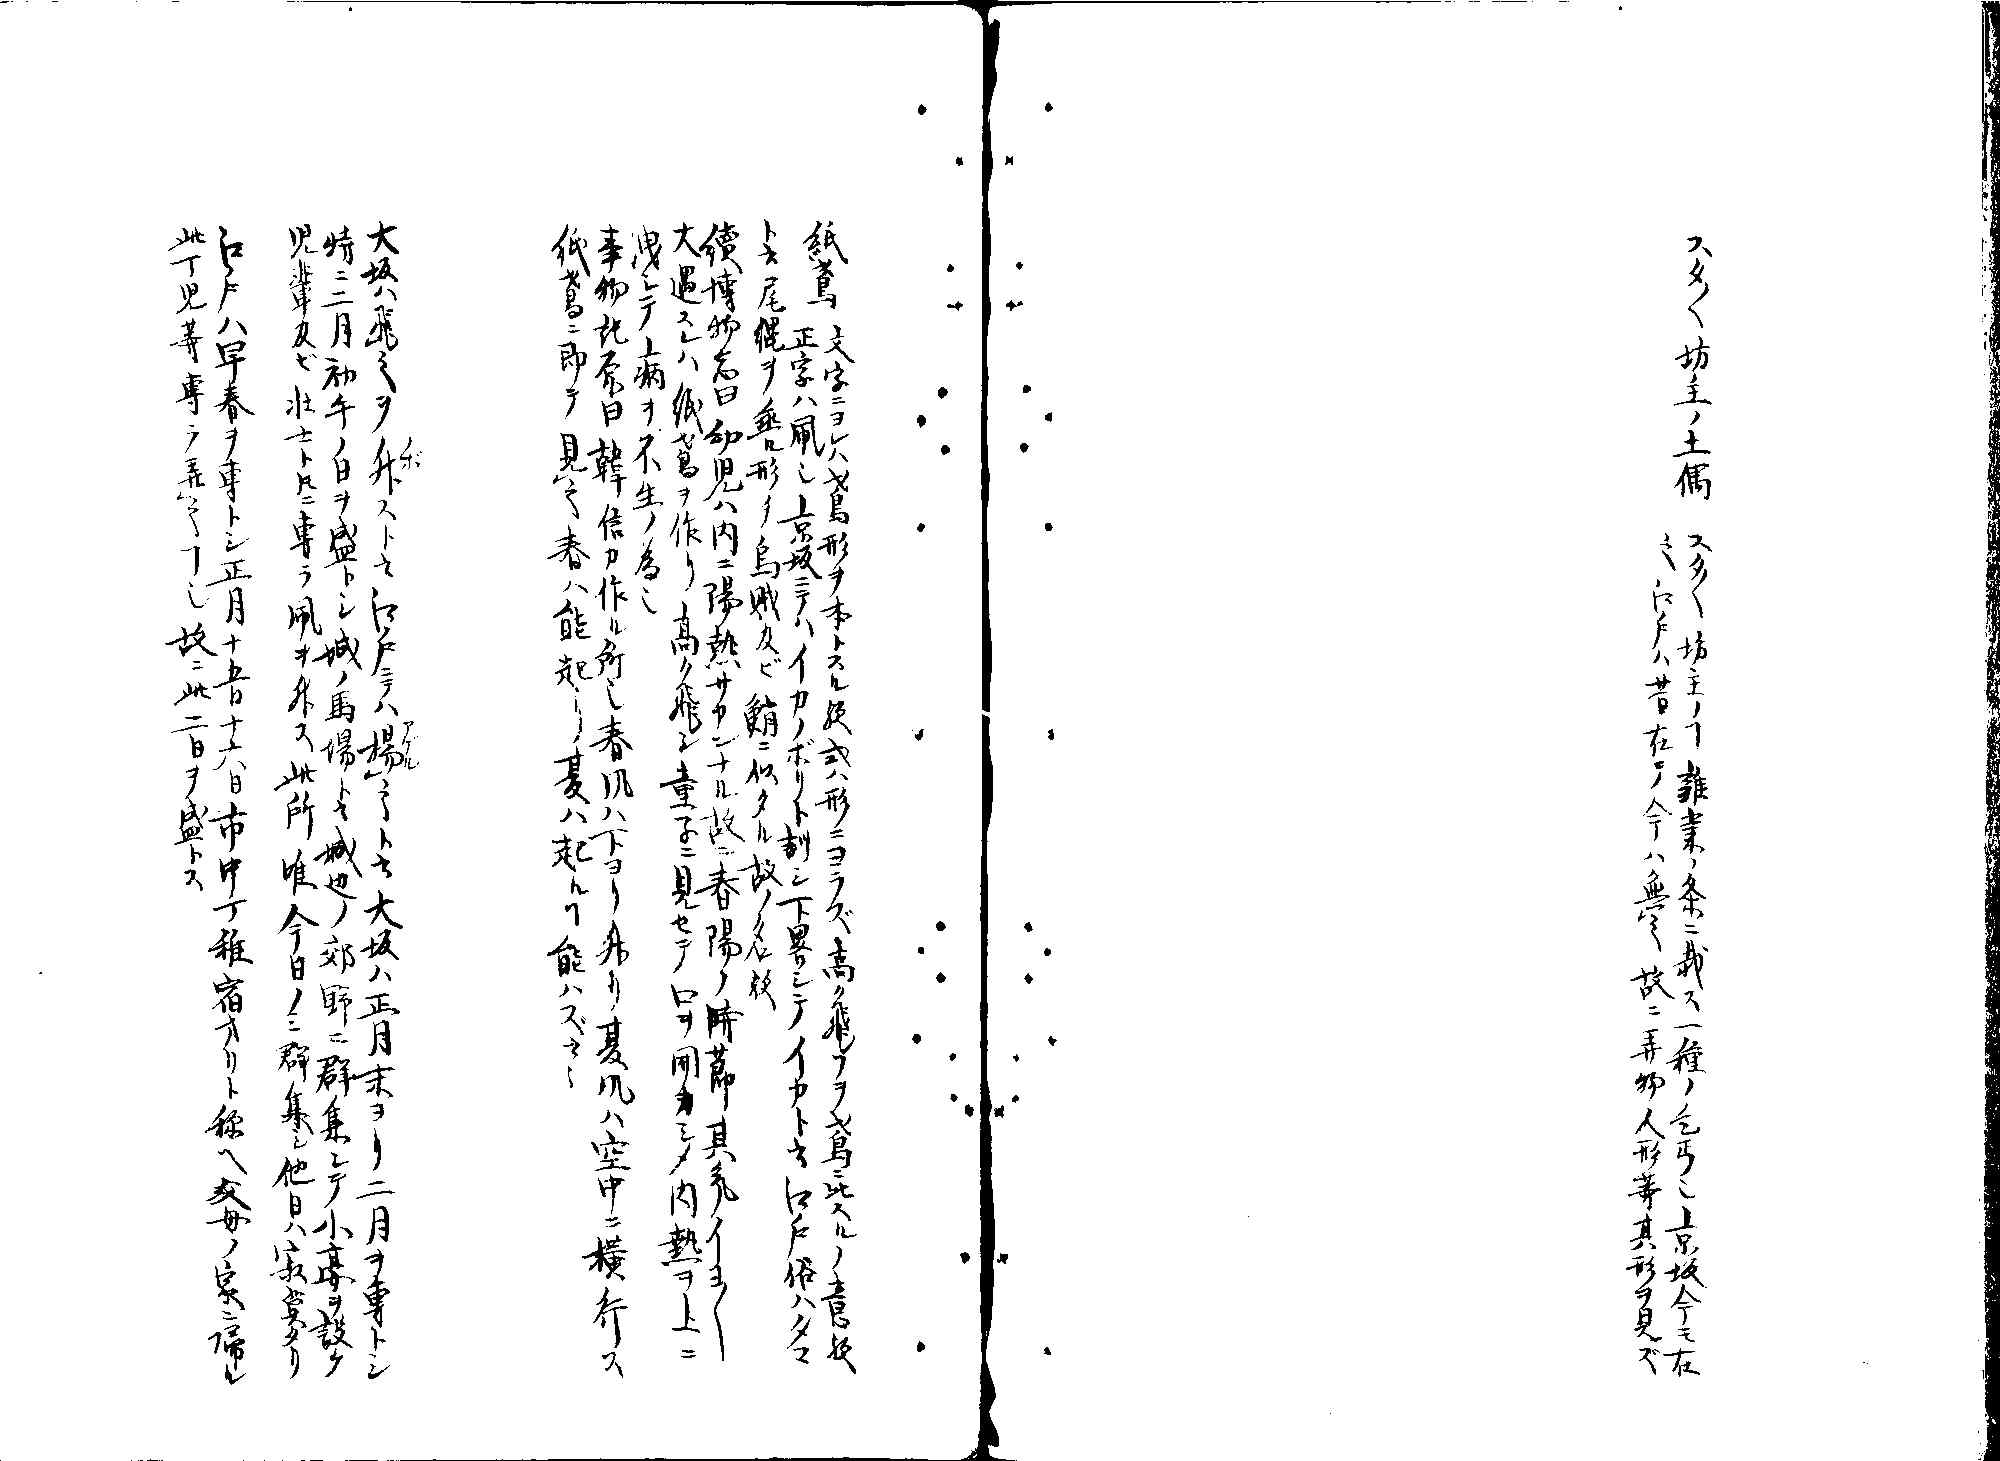 スタ〳〵坊主ノ土偶
スタ〳〵坊主ノヿ雑業ノ条ニ載ス一種ノ乞丐也京坂今モ在
之江戸ハ昔在テ今ハ無之故ニ弄物人形等其形ヲ見ズ
紙鳶 文字ニヨレハ鳶形ヲ本トスル歟或ハ形ニヨラズ高ク飛フヲ鳶ニ比スルノ意歟
正字ハ凧也京坂ニテハイカノボリト訓シ下畧シテイカト云江戸俗ハタコ
ト云尾縄ヲ垂ル形チ烏賊及ビ鮹ニ似タル故ノ名歟
續博物志曰幼児ハ内ニ陽熱サカンナル故ニ春陽ノ時節其気イヨ〳〵
大過スレハ紙鳶ヲ作リ高ク飛シ童子ニ見セテ口ヲ開カシメ内熱ヲ上ニ
洩シテ病ヲ不生ノ為也
事物記原曰韓信カ作ル所也春風ハ下ヨリ升リ夏風ハ空中ニ横行ス
紙鳶ニ即テ見之春ハ能起リ夏ハ起ルヿ能ハズ云々
大坂ハ飛之ヲ升ストス云江戸ニテハ揚之ト云大坂ハ正月末ヨリ二月ヲ専トシ
特ニ二月初午ノ日ヲ盛トシ城ノ馬場ト云城辺ノ郊野ニ群集シテ小亭ヲ設ケ
児輩及ビ壮士トモニ専ラ凧ヲ升ス此所唯今日ノミ群集シ他日ハ寂寞タリ
江戸ハ早春ヲ専トシ正月十五日十六日市中丁稚宿オリト称ヘ父母ノ家ニ帰ル
此丁児等専ラ弄之ヿ也故ニ此二日ヲ盛トス